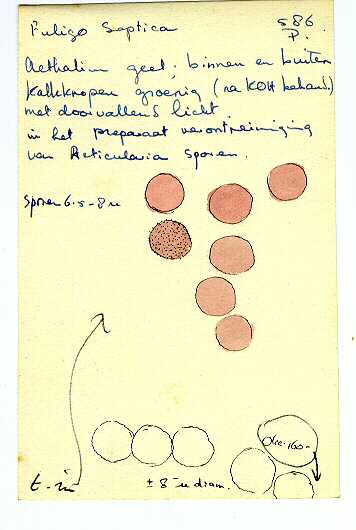 Fuligo Septica
586
P.
Aethaliun geel; binnen en buiten
Kalkknopen groenig (na KOH behand.)
met doorvallend licht
in het preparaat verontreiniging
van Reticularia sporen.
Sporen 6.5-8 u
± 8 u diam.